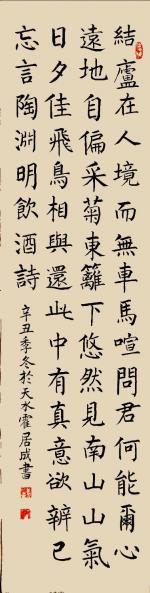 結廬在人境而無車馬喧問君何能爾心
遠地自偏采菊東籬下悠然見南山山氣
日夕佳飛鳥相與還此中有真意欲辨已
忘言陶淵明飲酒詩
辛丑季冬於天水霍居成書